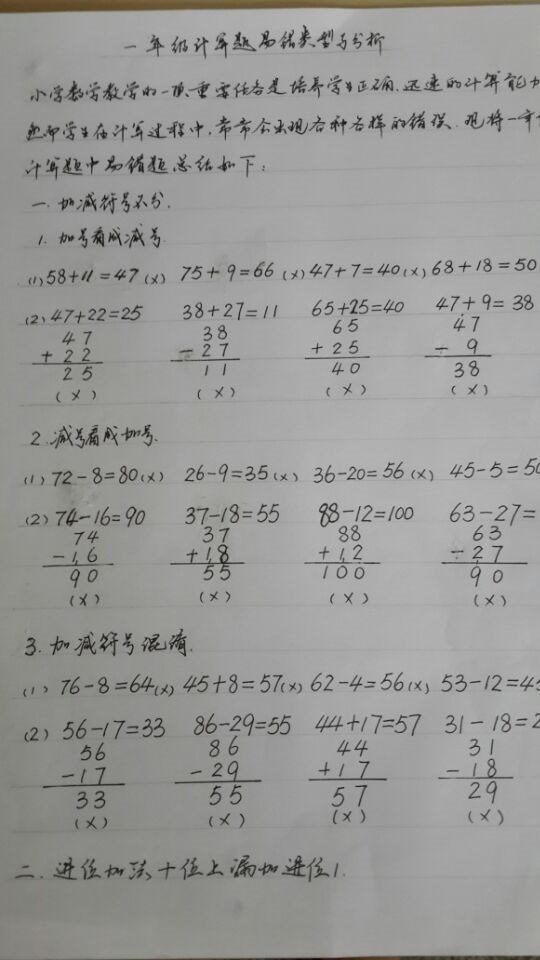 一年级计算题易错类型与分析
小学数学教学的一项重要任务是培养学生正确、迅速的计算能力
然而学生在计算过程中,常常会出现各种各样的错误.现将一年
计算题中易错题总结如下:
一.加减符号不分.
1.加号看成减号.
(1)58+11=47(×) 75+9=66(×) 47+7=40(×) 68+18=50
(2)47+22=25 38+27=11 65+25=40 47+9=38
47 38 65 47
+22 -27 +25 -9
25 11 40 38
(×) (×) (×) (×)
2.减号看成加号.
(1)72-8=80(×) 26-9=35(×) 36-20=56(×) 45-5=50
(2)74-16=90 37-18=55 88-12=100 63-27=
74 37 88 63
-16 +18 +12 -27
90 55 100 90
(×) (×) (×) (×)
3.加减符号混淆.
(1)76-8=64(×) 45+8=57(×) 62-4=56(×) 53-12=45
(2)56-17=33 86-29=55 44+17=57 31-18=2
56 86 44 31
-17 -29 +17 -18
33 55 57 29
(×) (×) (×) (×)
二.进位加法十位上漏加进位1.